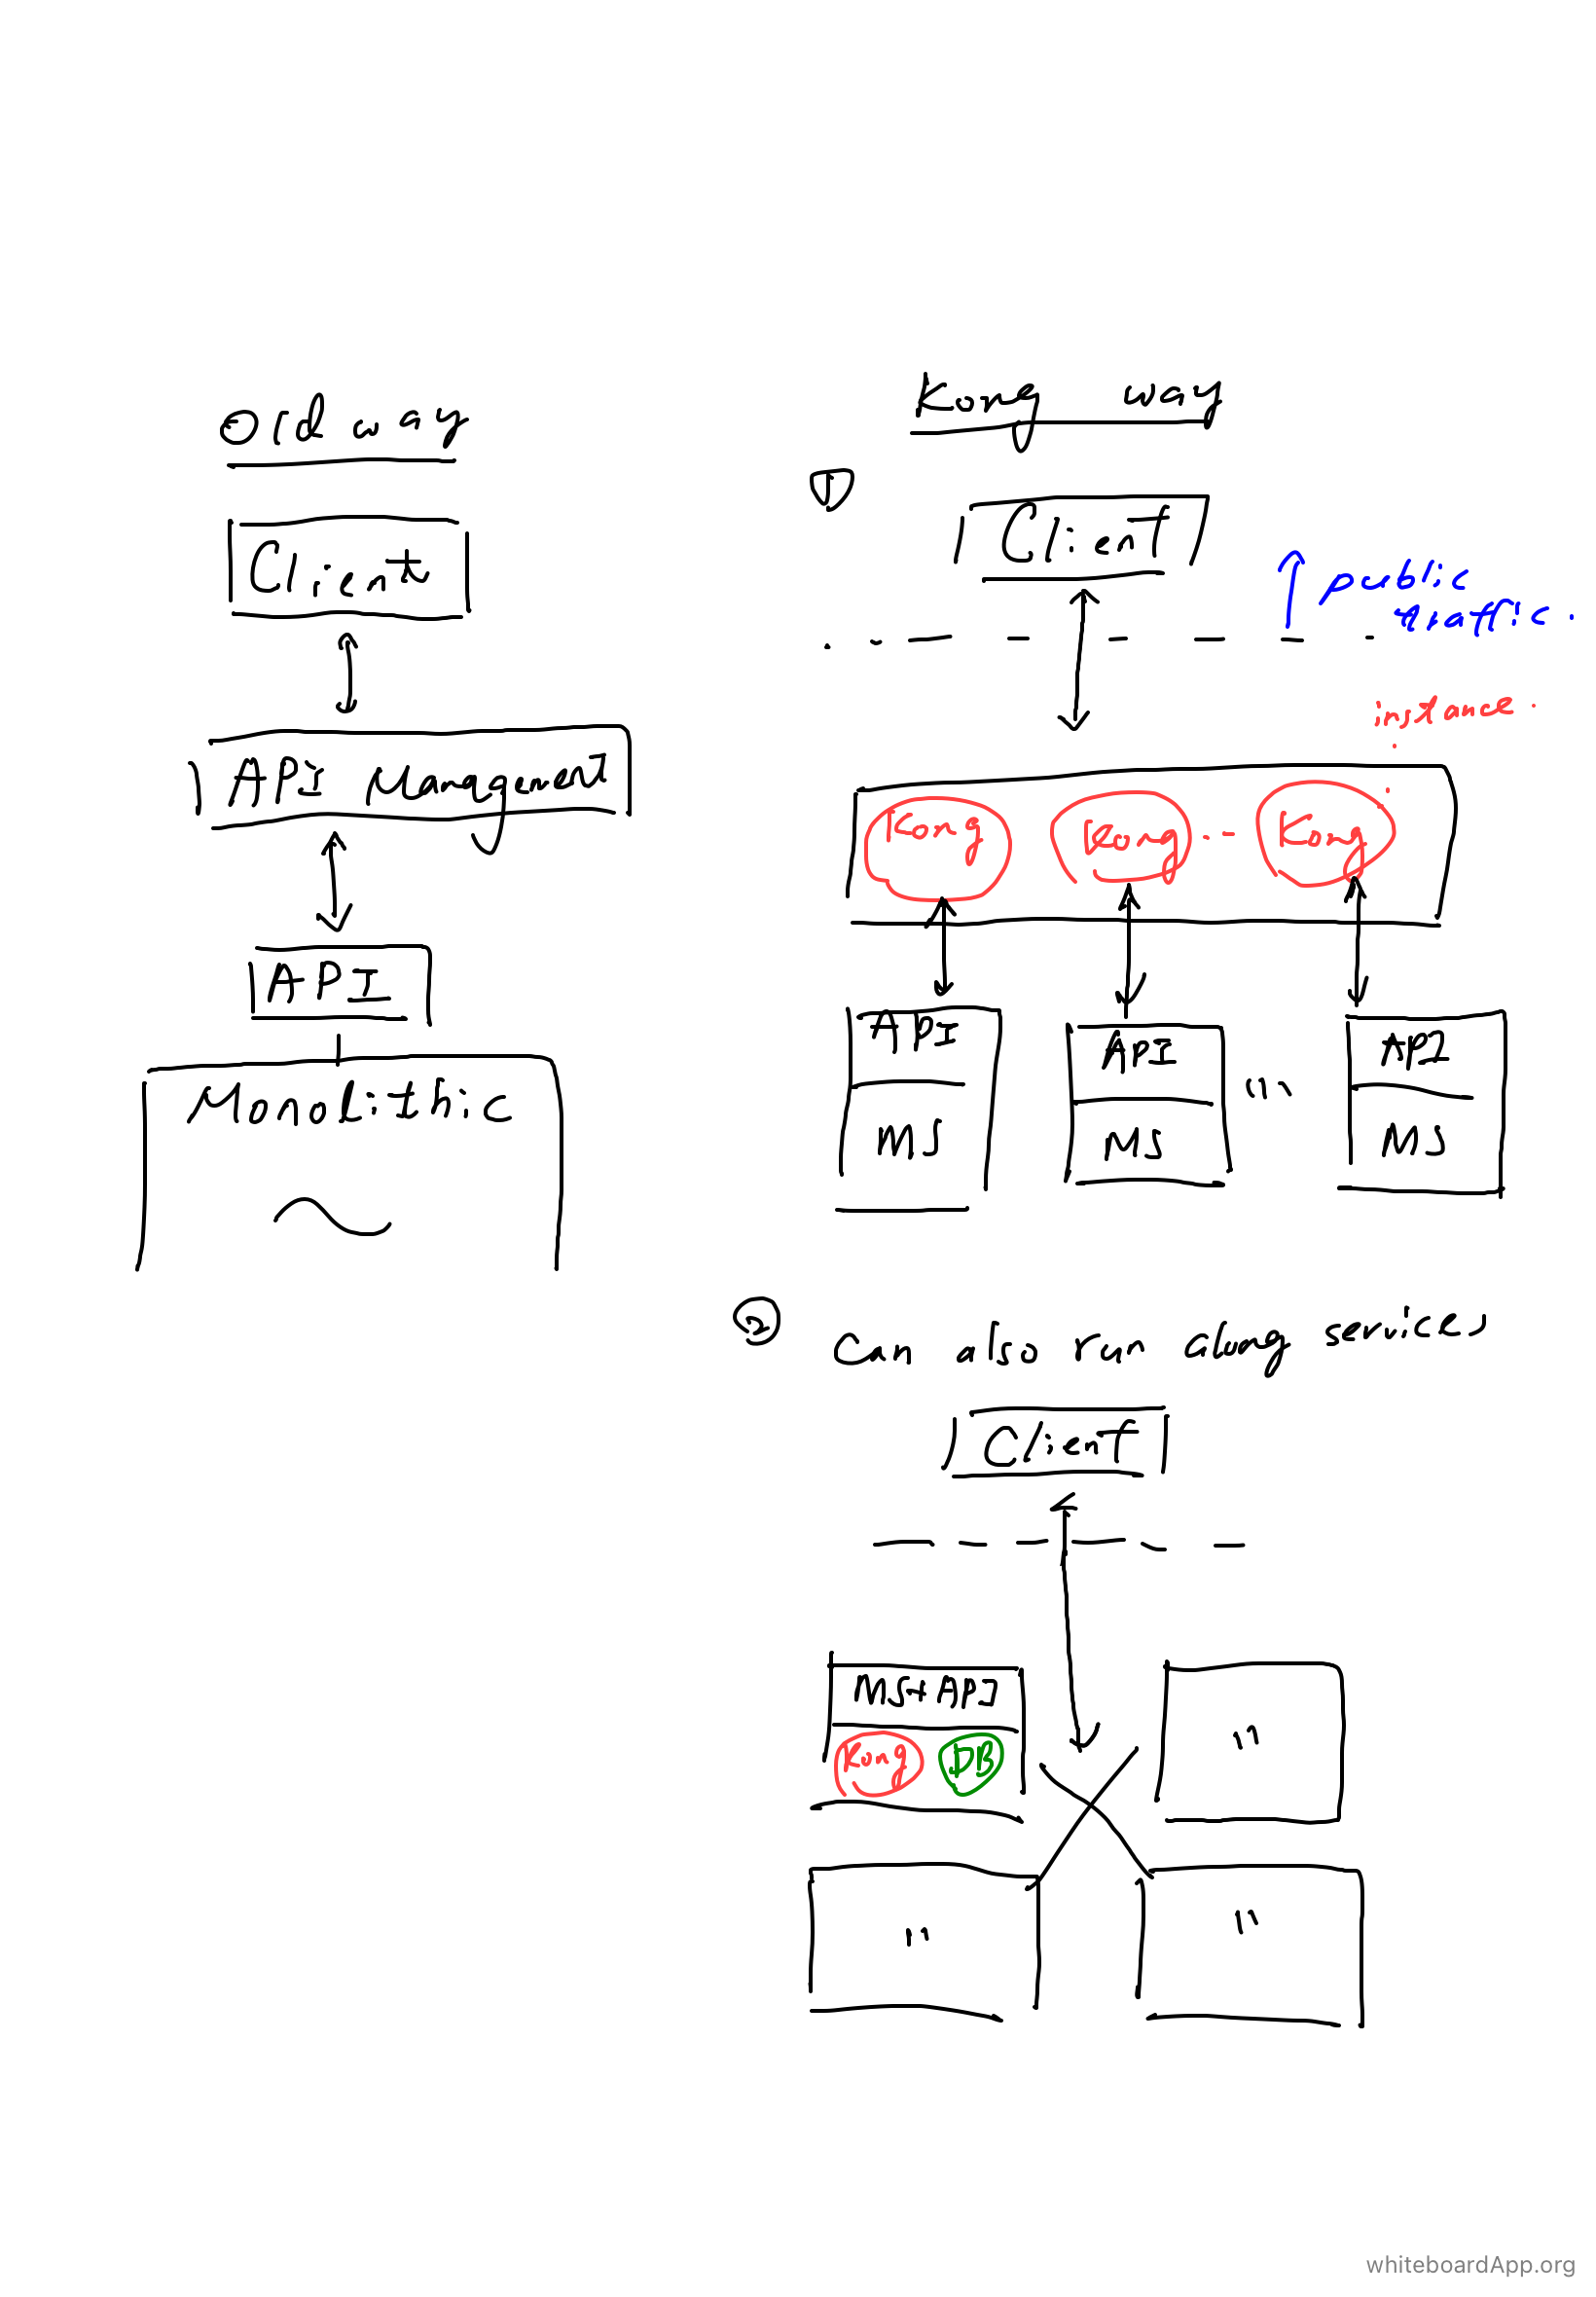 Old way
Client
API Management
API
Monolithic
Kong way
①
Client
public
traffic.
instance.
Kong
Kong
Kong
API
MS
API
MS
API
MS
② Can also run along services
Client
MS+API
Kong
DB
whiteboardApp.org